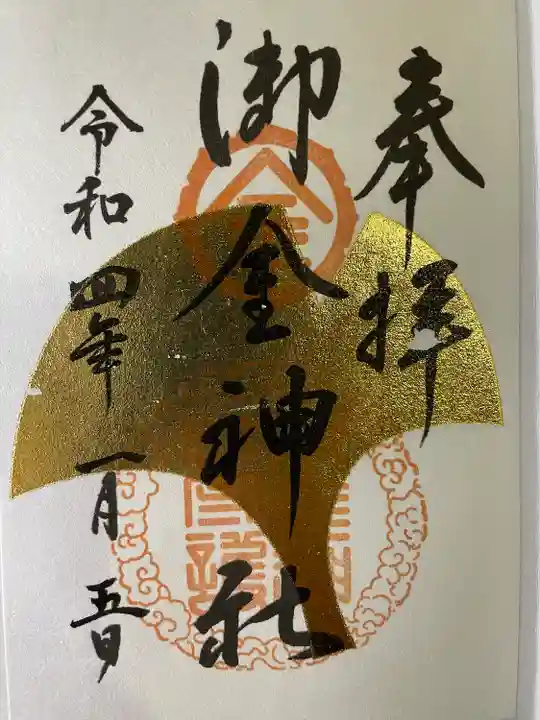 奉拝
御金神社
令和四年一月五日